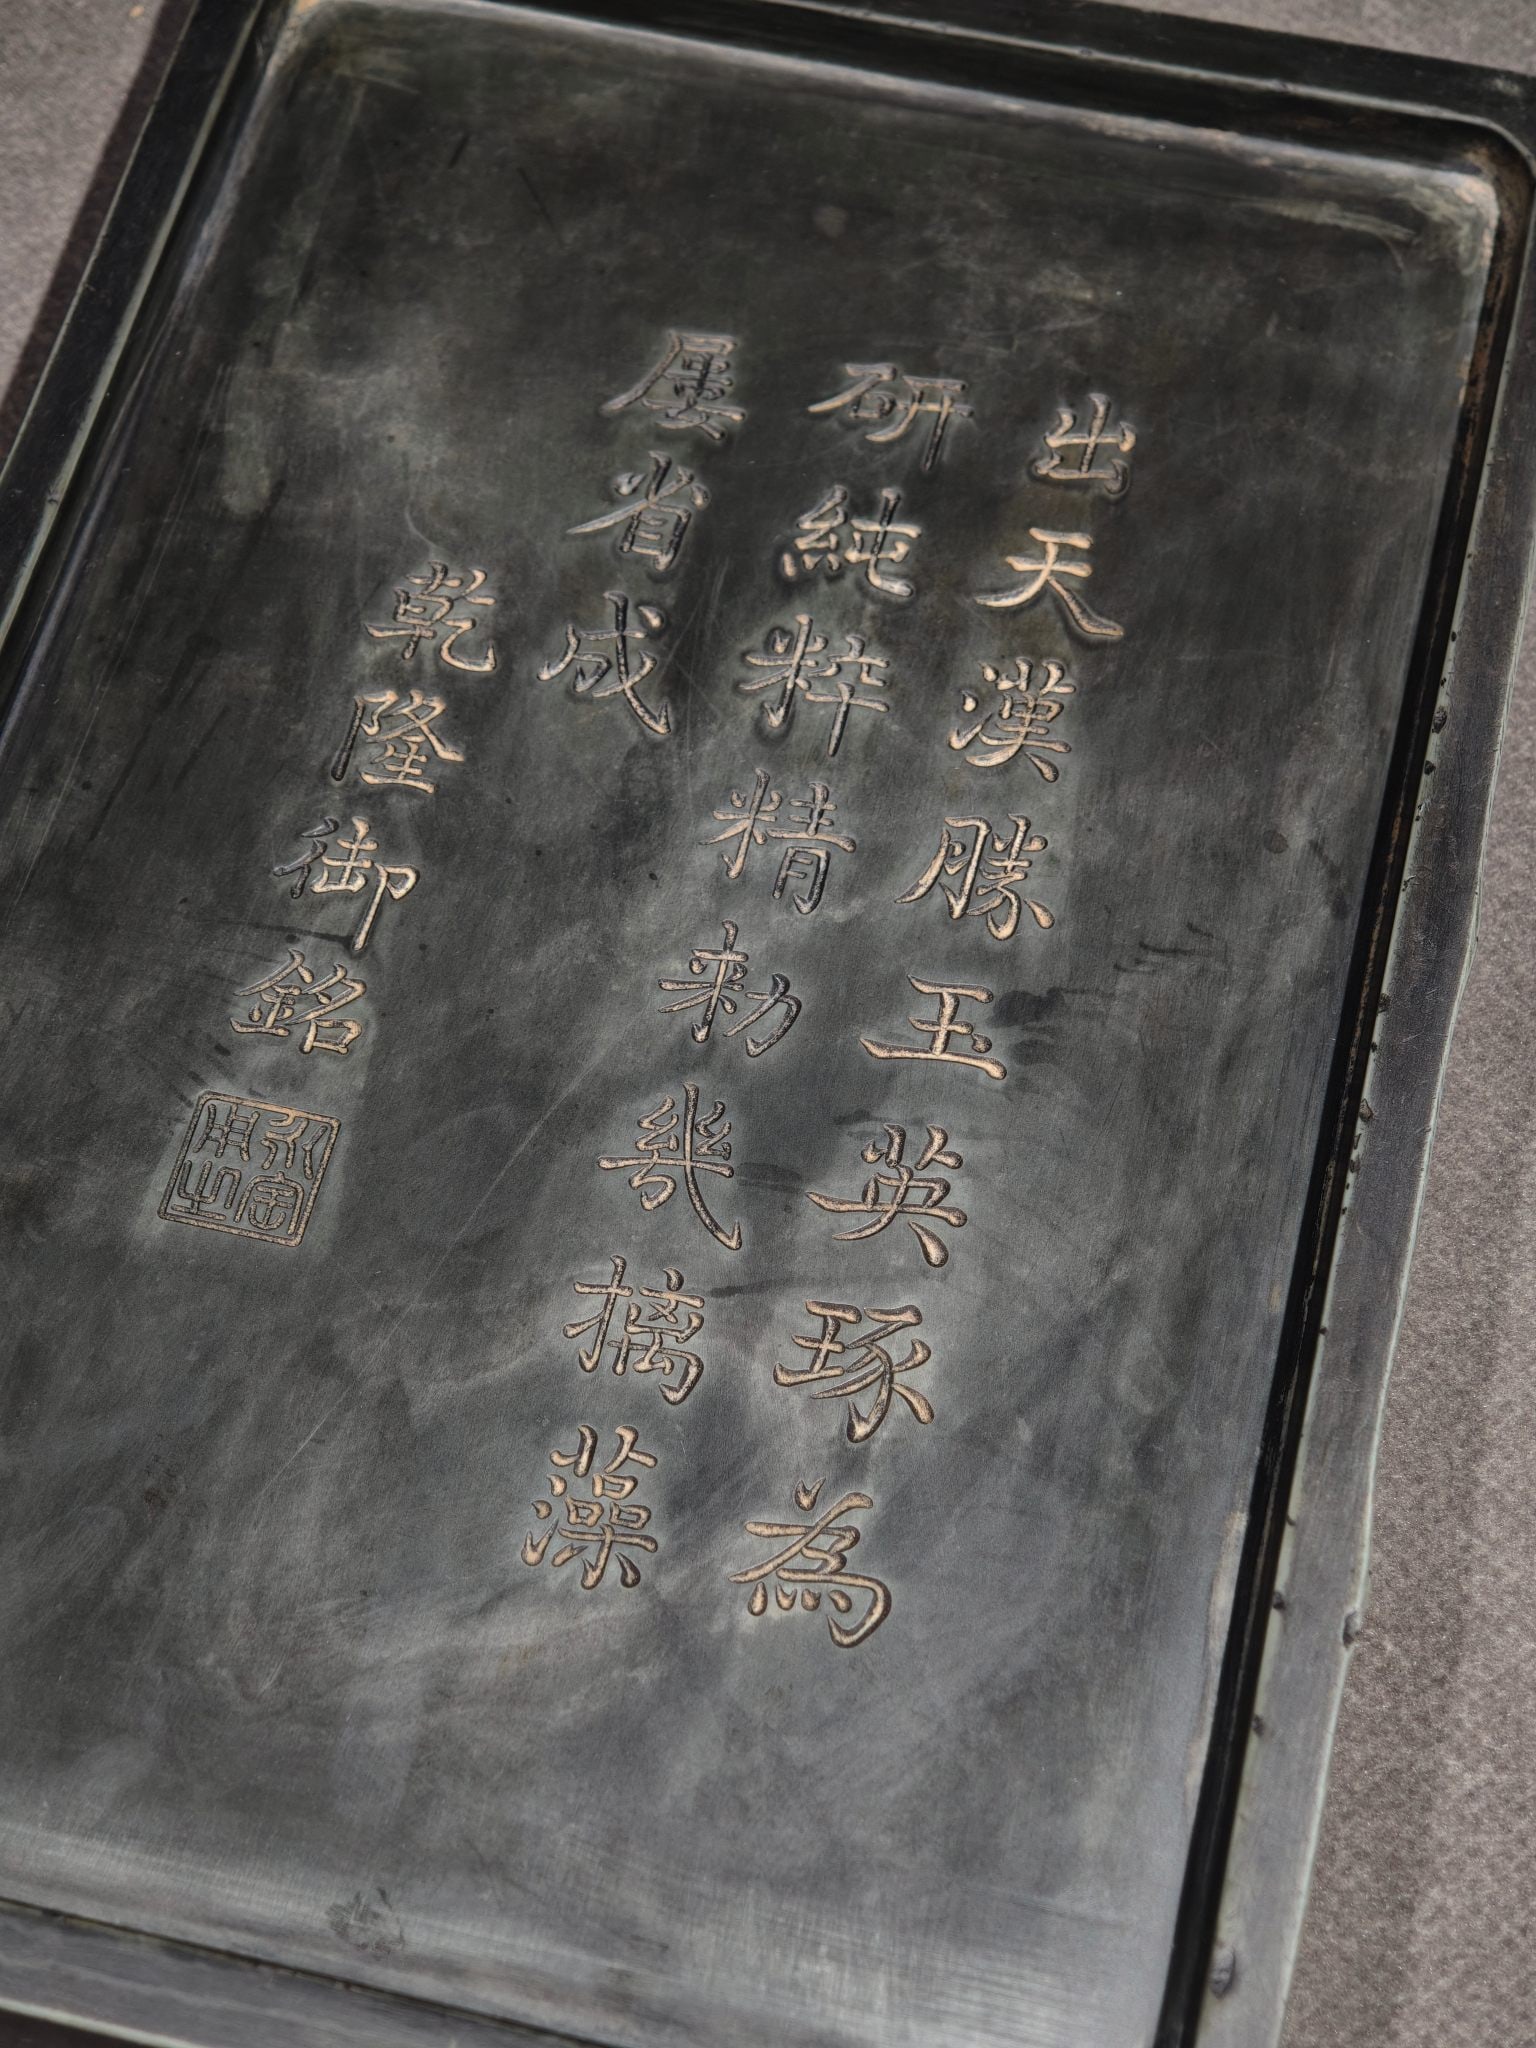 出天漢勝玉英琢為
研純粹精勑幾摛藻
屢省成
乾隆御銘
永寶用之